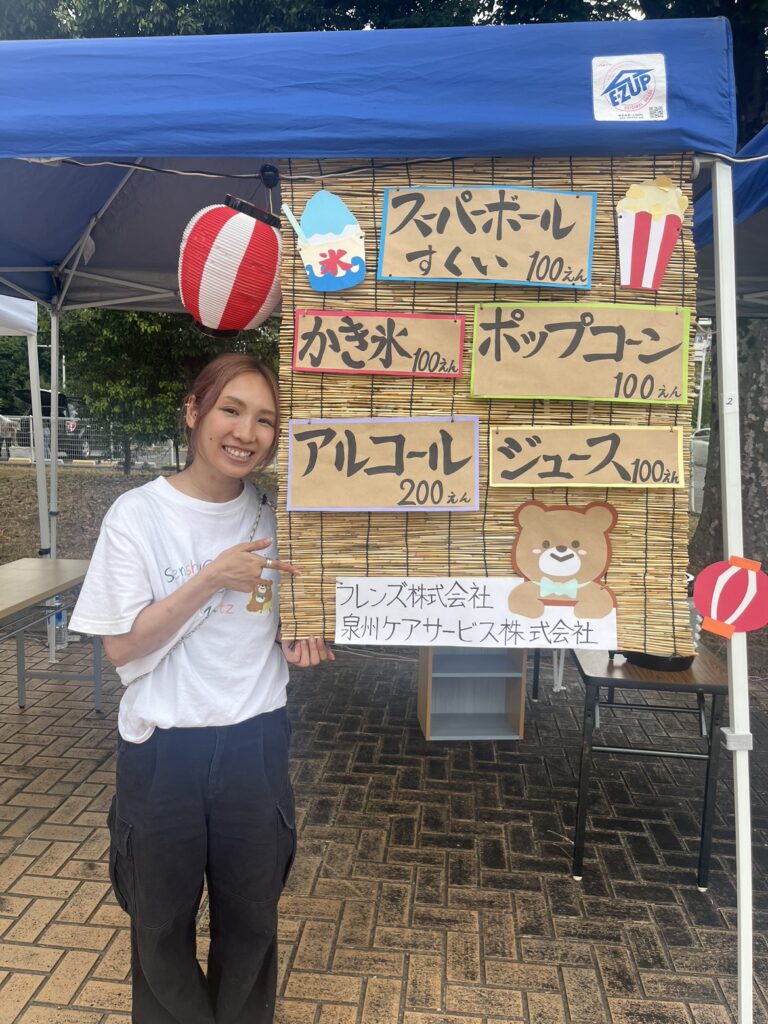 E-ZUP
氷
スーパーボール
すくい 100えん
かき氷 100えん
ポップコーン
100えん
アルコール
200えん
ジュース 100えん
フレンズ株式会社
泉州ケアサービス株式会社
2